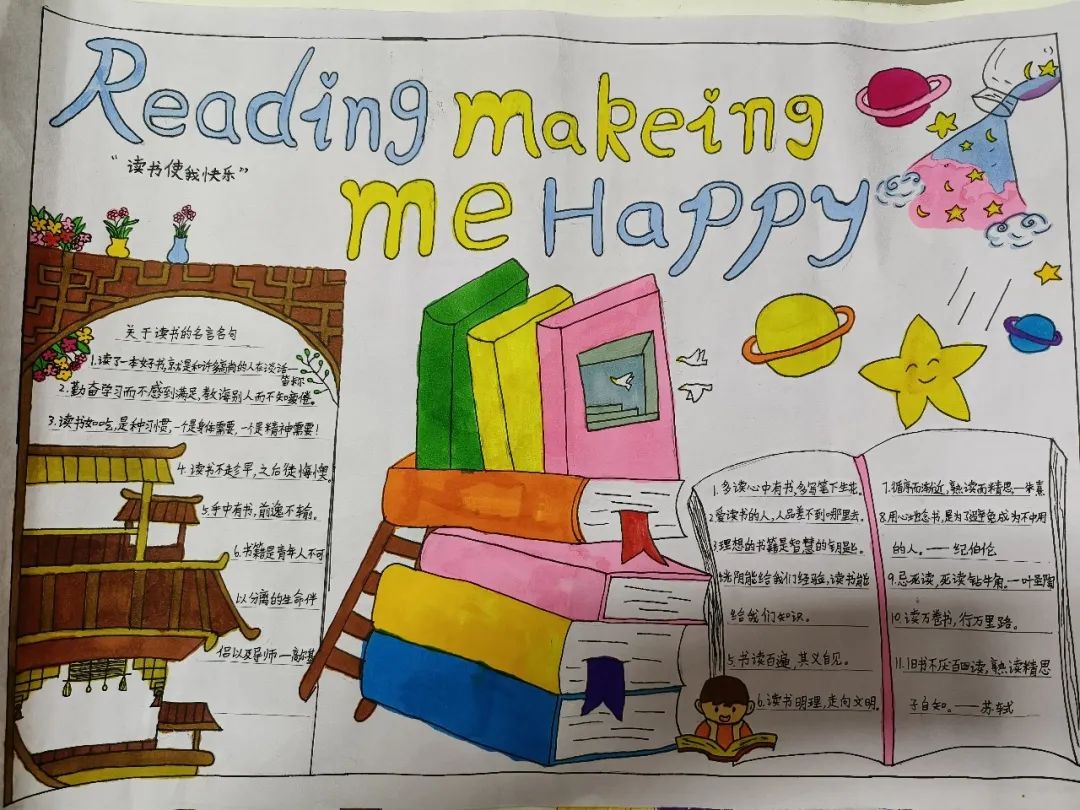 Reading makeing
me Happy
“读书使我快乐”
关于读书的名言名句
1.读了一本好书,就是和许多高尚的人在谈话
笛卡尔
2.勤奋学习而不感到满足,教诲别人而不知疲倦。
3.读书如吃,是种习惯,一个是身体需要,一个是精神需要!
4.读书不趁早,之后徒悔懊。
5.手中有书,前途不输。
6.书籍是青年人不可
以分离的生命伴
侣以及导师—高尔基
1.多读心中有书,多写笔下生花。
2爱读书的人,人品差不到哪里去。
3.理想的书籍是智慧的钥匙。
光阴能给我们经验,读书能
给我们知识。
5.书读百遍,其义自见。
6.读书明理,走向文明。
7.循序而渐近,熟读而精思—朱熹
8.用心念书,是为了避免成为不中用
的人。——纪伯伦
9.忌死读,死读钻牛角.—叶圣陶
10.读万卷书,行万里路。
11.旧书不厌百回读,熟读精思
子自知。——苏轼